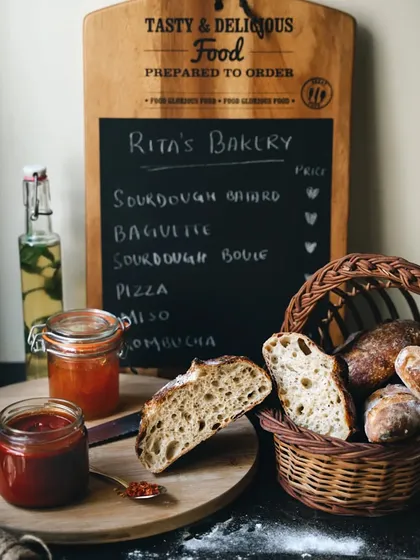 TASTY & DELICIOUS
Food
PREPARED TO ORDER
• FOOD GLORIOUS FOOD • FOOD GLORIOUS FOOD •
RITA'S BAKERY
PRICE
SOURDOUGH BATARD
BAGUETTE
SOURDOUGH BOULE
PIZZA
MISO
KOMBUCHA